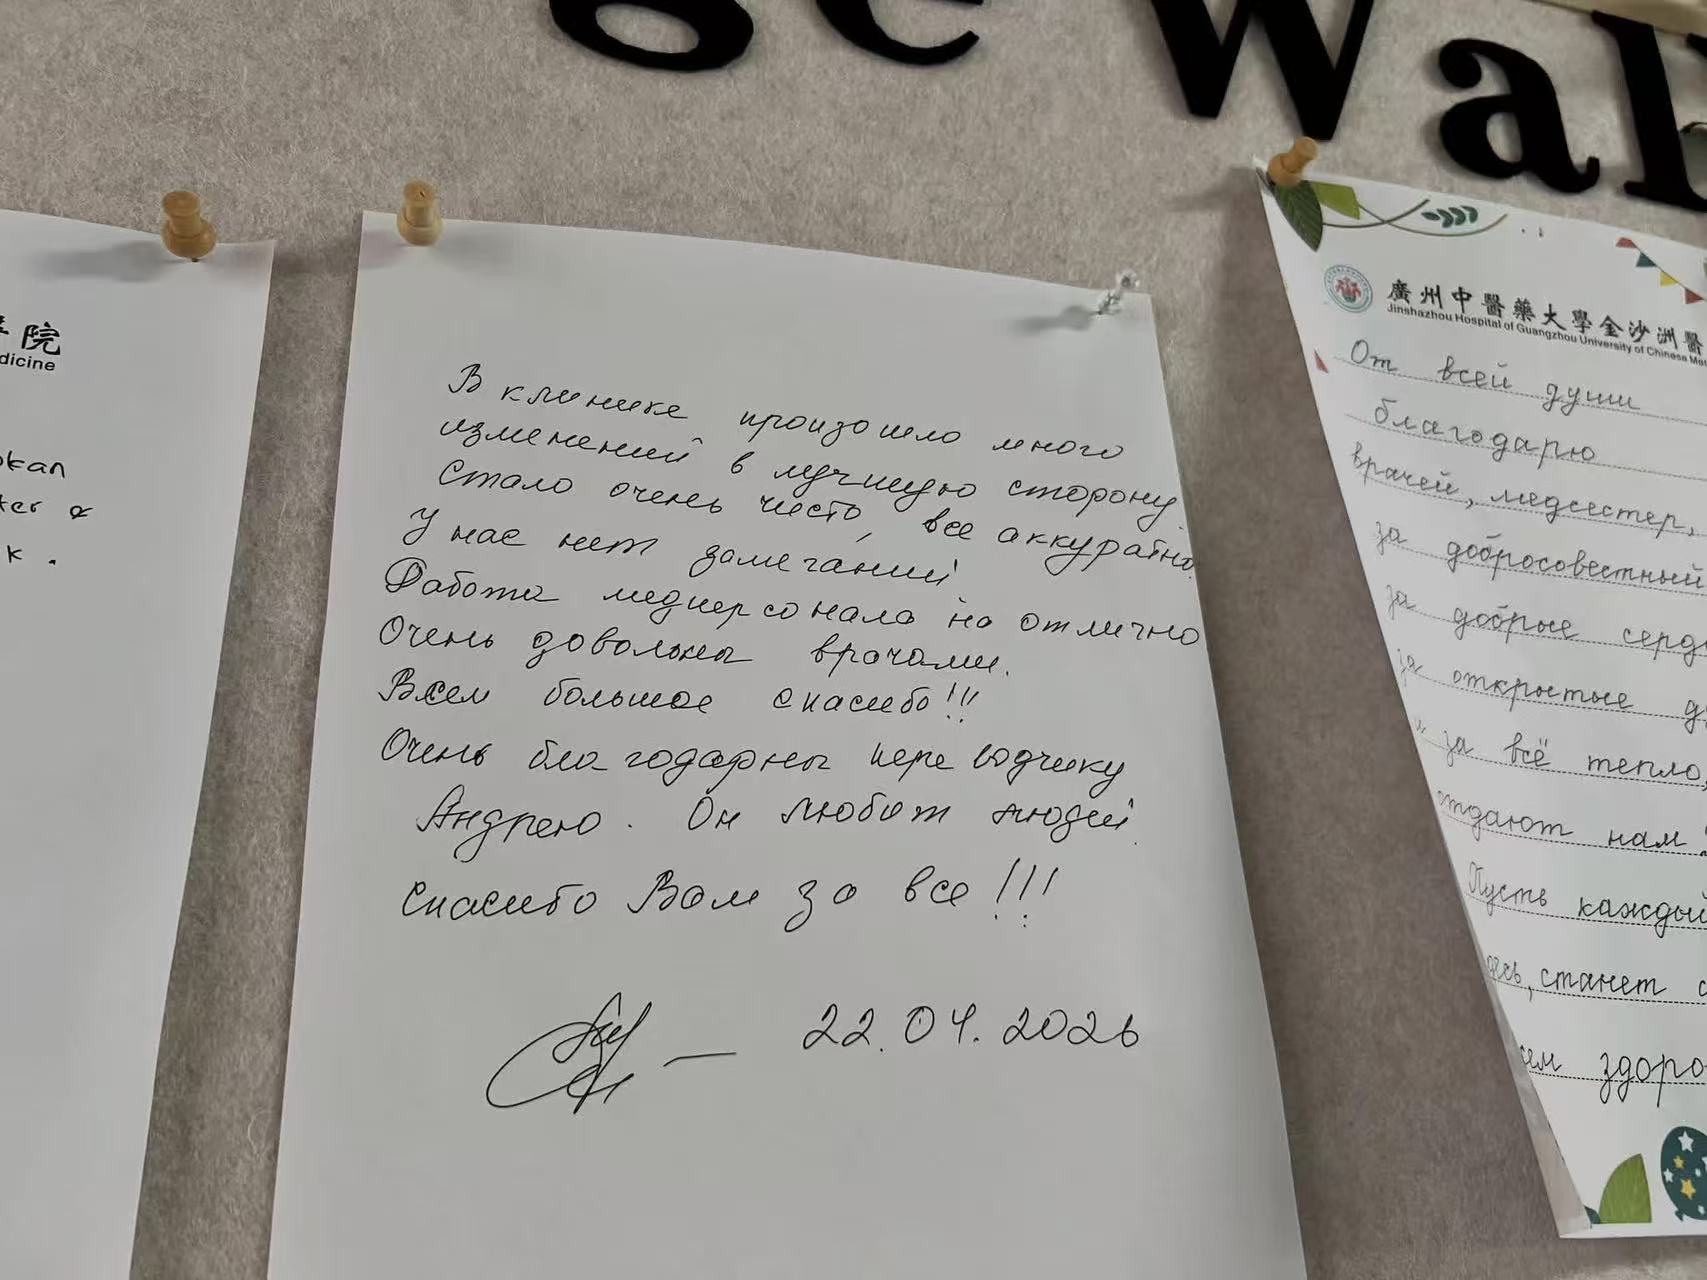 ge Wal
院
dicine
okan
ter &
k.
В клинике произошло много
изменений в лучшую сторону.
Стало очень чисто, все аккуратно.
У нас нет замечаний
Работа медперсонала на отлично
Очень довольны врачами.
Всем большое спасибо!!!
Очень благодарны переводчику
Андрею. Он любит людей.
Спасибо Вам за все!!!
22.04.2026
廣州中醫藥大學金沙洲醫
Jinshazhou Hospital of Guangzhou University of Chinese Med
От всей души
благодарю
врачей, медсестер,
за добросовестный
за добрые серд
за открытые д
за всё тепло,
отдают нам
Пусть каждый
станет с
здоро